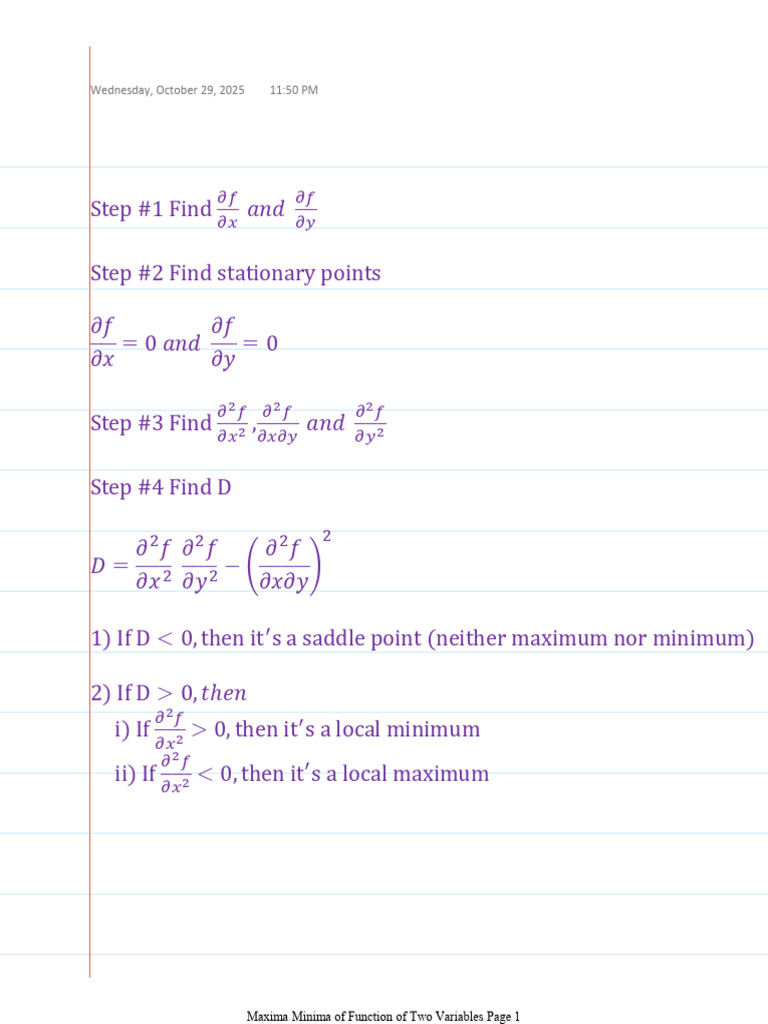 Wednesday, October 29, 2025 11:50 PM
Step #1 Find ∂f/∂x and ∂f/∂y
Step #2 Find stationary points
∂f/∂x = 0 and ∂f/∂y = 0
Step #3 Find ∂²f/∂x², ∂²f/∂x∂y and ∂²f/∂y²
Step #4 Find D
D = ∂²f/∂x² ∂²f/∂y² − (∂²f/∂x∂y)²
1) If D < 0, then it′s a saddle point (neither maximum nor minimum)
2) If D > 0, then
i) If ∂²f/∂x² > 0, then it′s a local minimum
ii) If ∂²f/∂x² < 0, then it′s a local maximum
Maxima Minima of Function of Two Variables Page 1